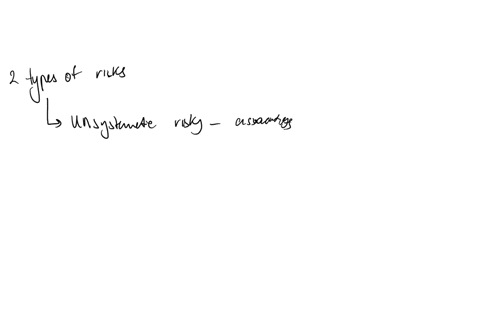 2 types of risks
unsystematic risk –